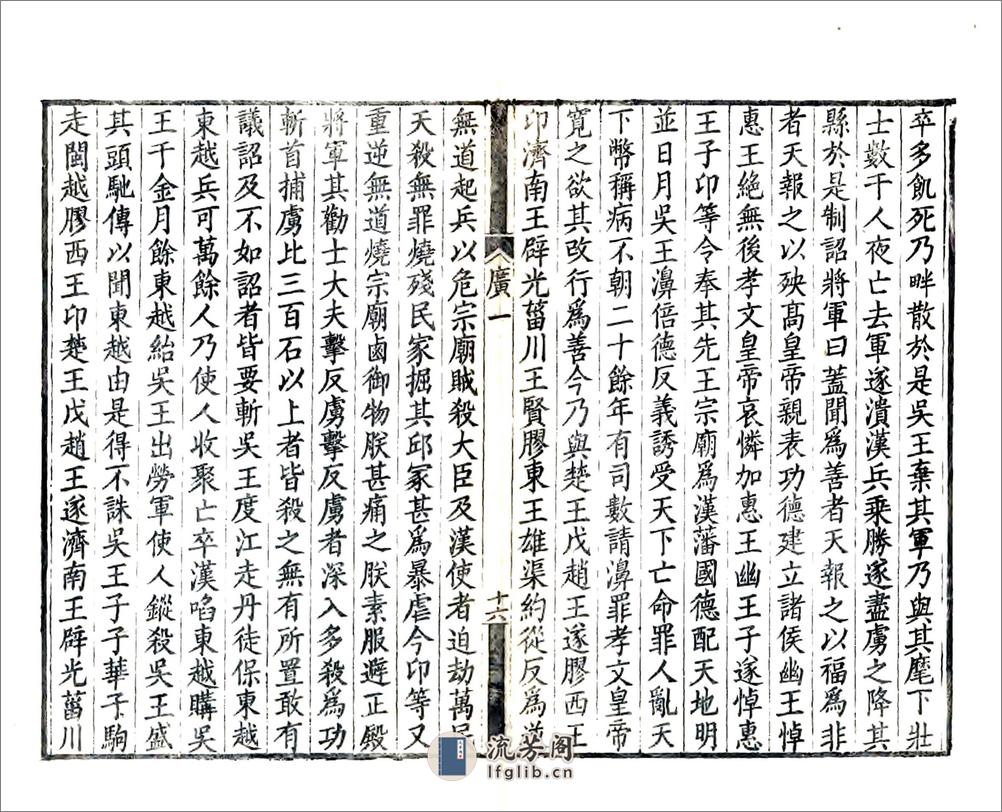 卒多飢死乃畔散於是吳王棄其軍乃與其麾下壯
士數千人夜亡去軍遂潰漢兵乘勝遂盡虜之降其
縣於是制詔將軍曰蓋聞為善者天報之以福為非
者天報之以殃高皇帝親表功德建立諸侯幽王悼
惠王絶無後孝文皇帝哀憐加惠王幽王子遂悼惠
王子卬等令奉其先王宗廟為漢藩國德配天地明
並日月吳王濞倍德反義誘受天下亡命罪人亂天
下幣稱病不朝二十餘年有司數請濞罪孝文皇帝
寬之欲其改行為善今乃與楚王戊趙王遂膠西王
卬濟南王辟光菑川王賢膠東王雄渠約從反為逆
廣一
十六
無道起兵以危宗廟賊殺大臣及漢使者迫劫萬民
天殺無罪燒殘民家掘其邱冢甚為暴虐今卬等又
重逆無道燒宗廟鹵御物朕甚痛之朕素服避正殿
將軍其勸士大夫擊反虜擊反虜者深入多殺為功
斬首捕虜比三百石以上者皆殺之無有所置敢有
議詔及不如詔者皆要斬吳王度江走丹徒保東越
東越兵可萬餘人乃使人收聚亡卒漢啗東越購吳
王千金月餘東越紿吳王出勞軍使人鏦殺吳王盛
其頭馳傳以聞東越由是得不誅吳王子子華子駒
走閩越膠西王卬楚王戊趙王遂濟南王辟光菑川
流芳閣
lfglib.cn